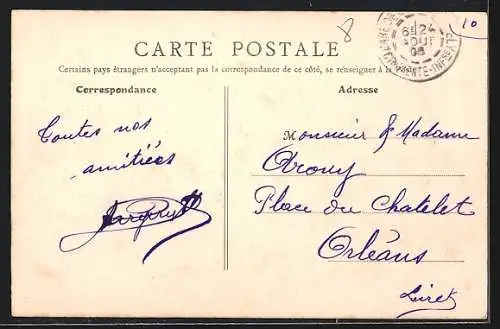 8
10
6E 24
AOUT
06
CHARENTE-INFRE
CARTE POSTALE
Certains pays étrangers n'acceptant pas la correspondance de ce côté, se renseigner à la Poste
Correspondance
Adresse
Toutes nos
amitiées
Monsieur & Madame
Place du Chatelet
Orléans
Loiret